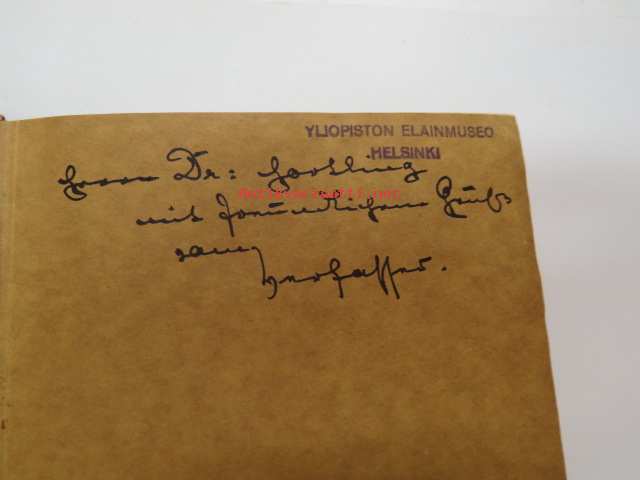 YLIOPISTON ELAINMUSEO
HELSINKI
Herrn Dr: Hortling
mit freundlichem Gruß
vom
Verfasser.